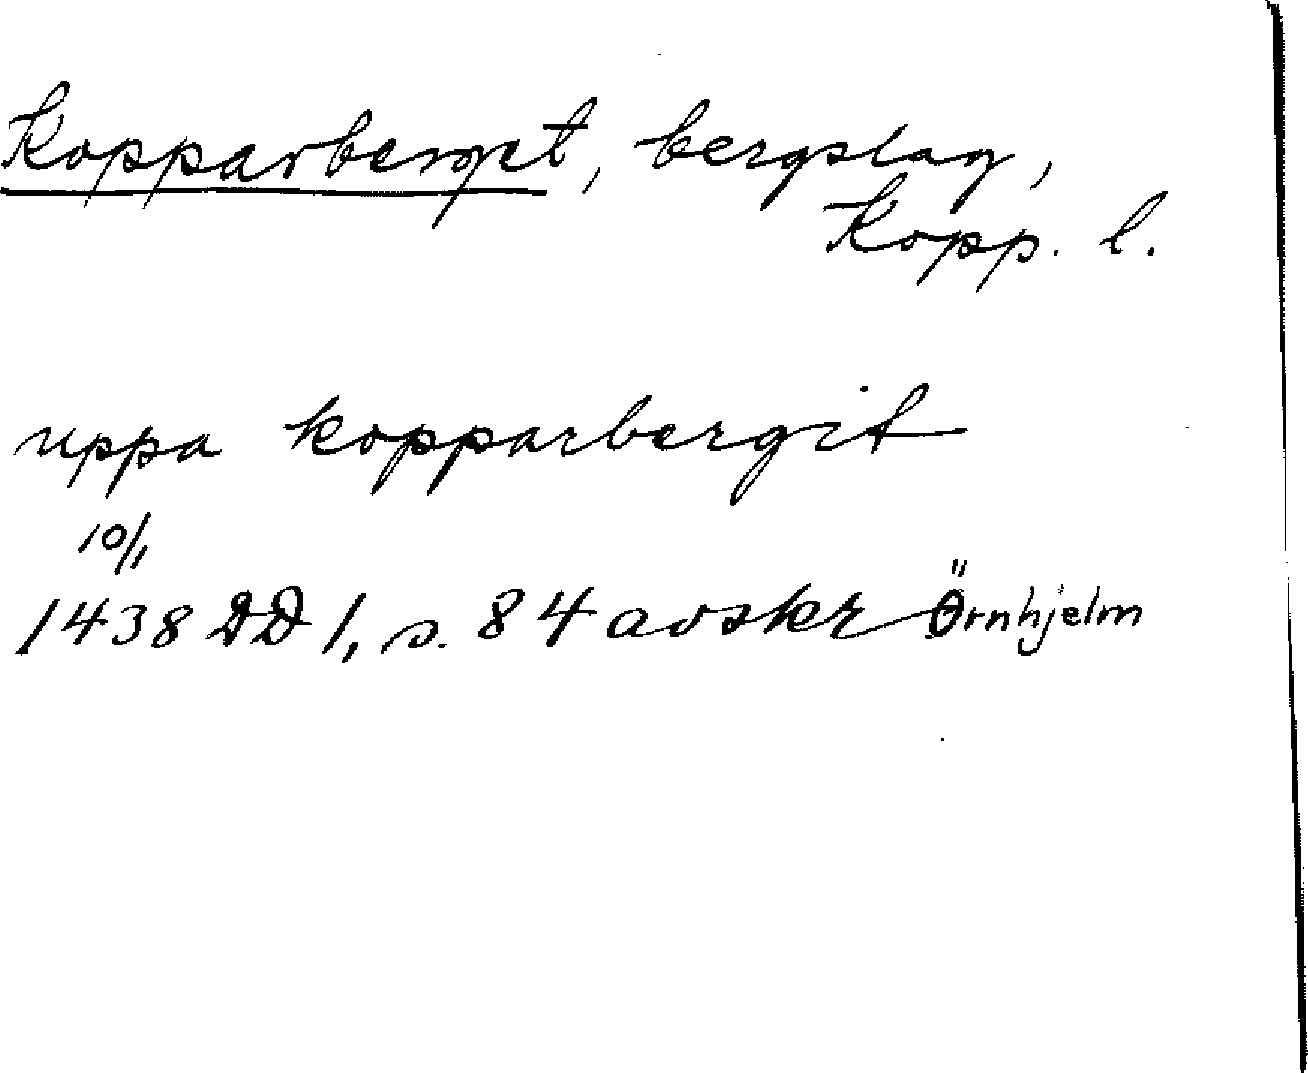 Kopparberget, bergslag,
Kopp. l.
uppa kopparbergit
10/1
1438 DD 1, s. 84 avskr Örnhjelm